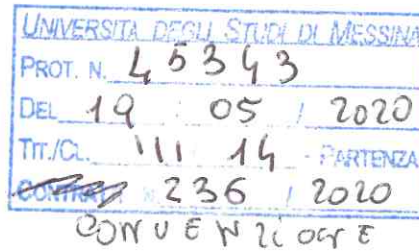 UNIVERSITÀ DEGLI STUDI DI MESSINA
PROT. N. 45343
DEL 19 05 / 2020
TIT./CL. III 14 - PARTENZA
CONTRATTI N 236 / 2020
CONVENZIONE